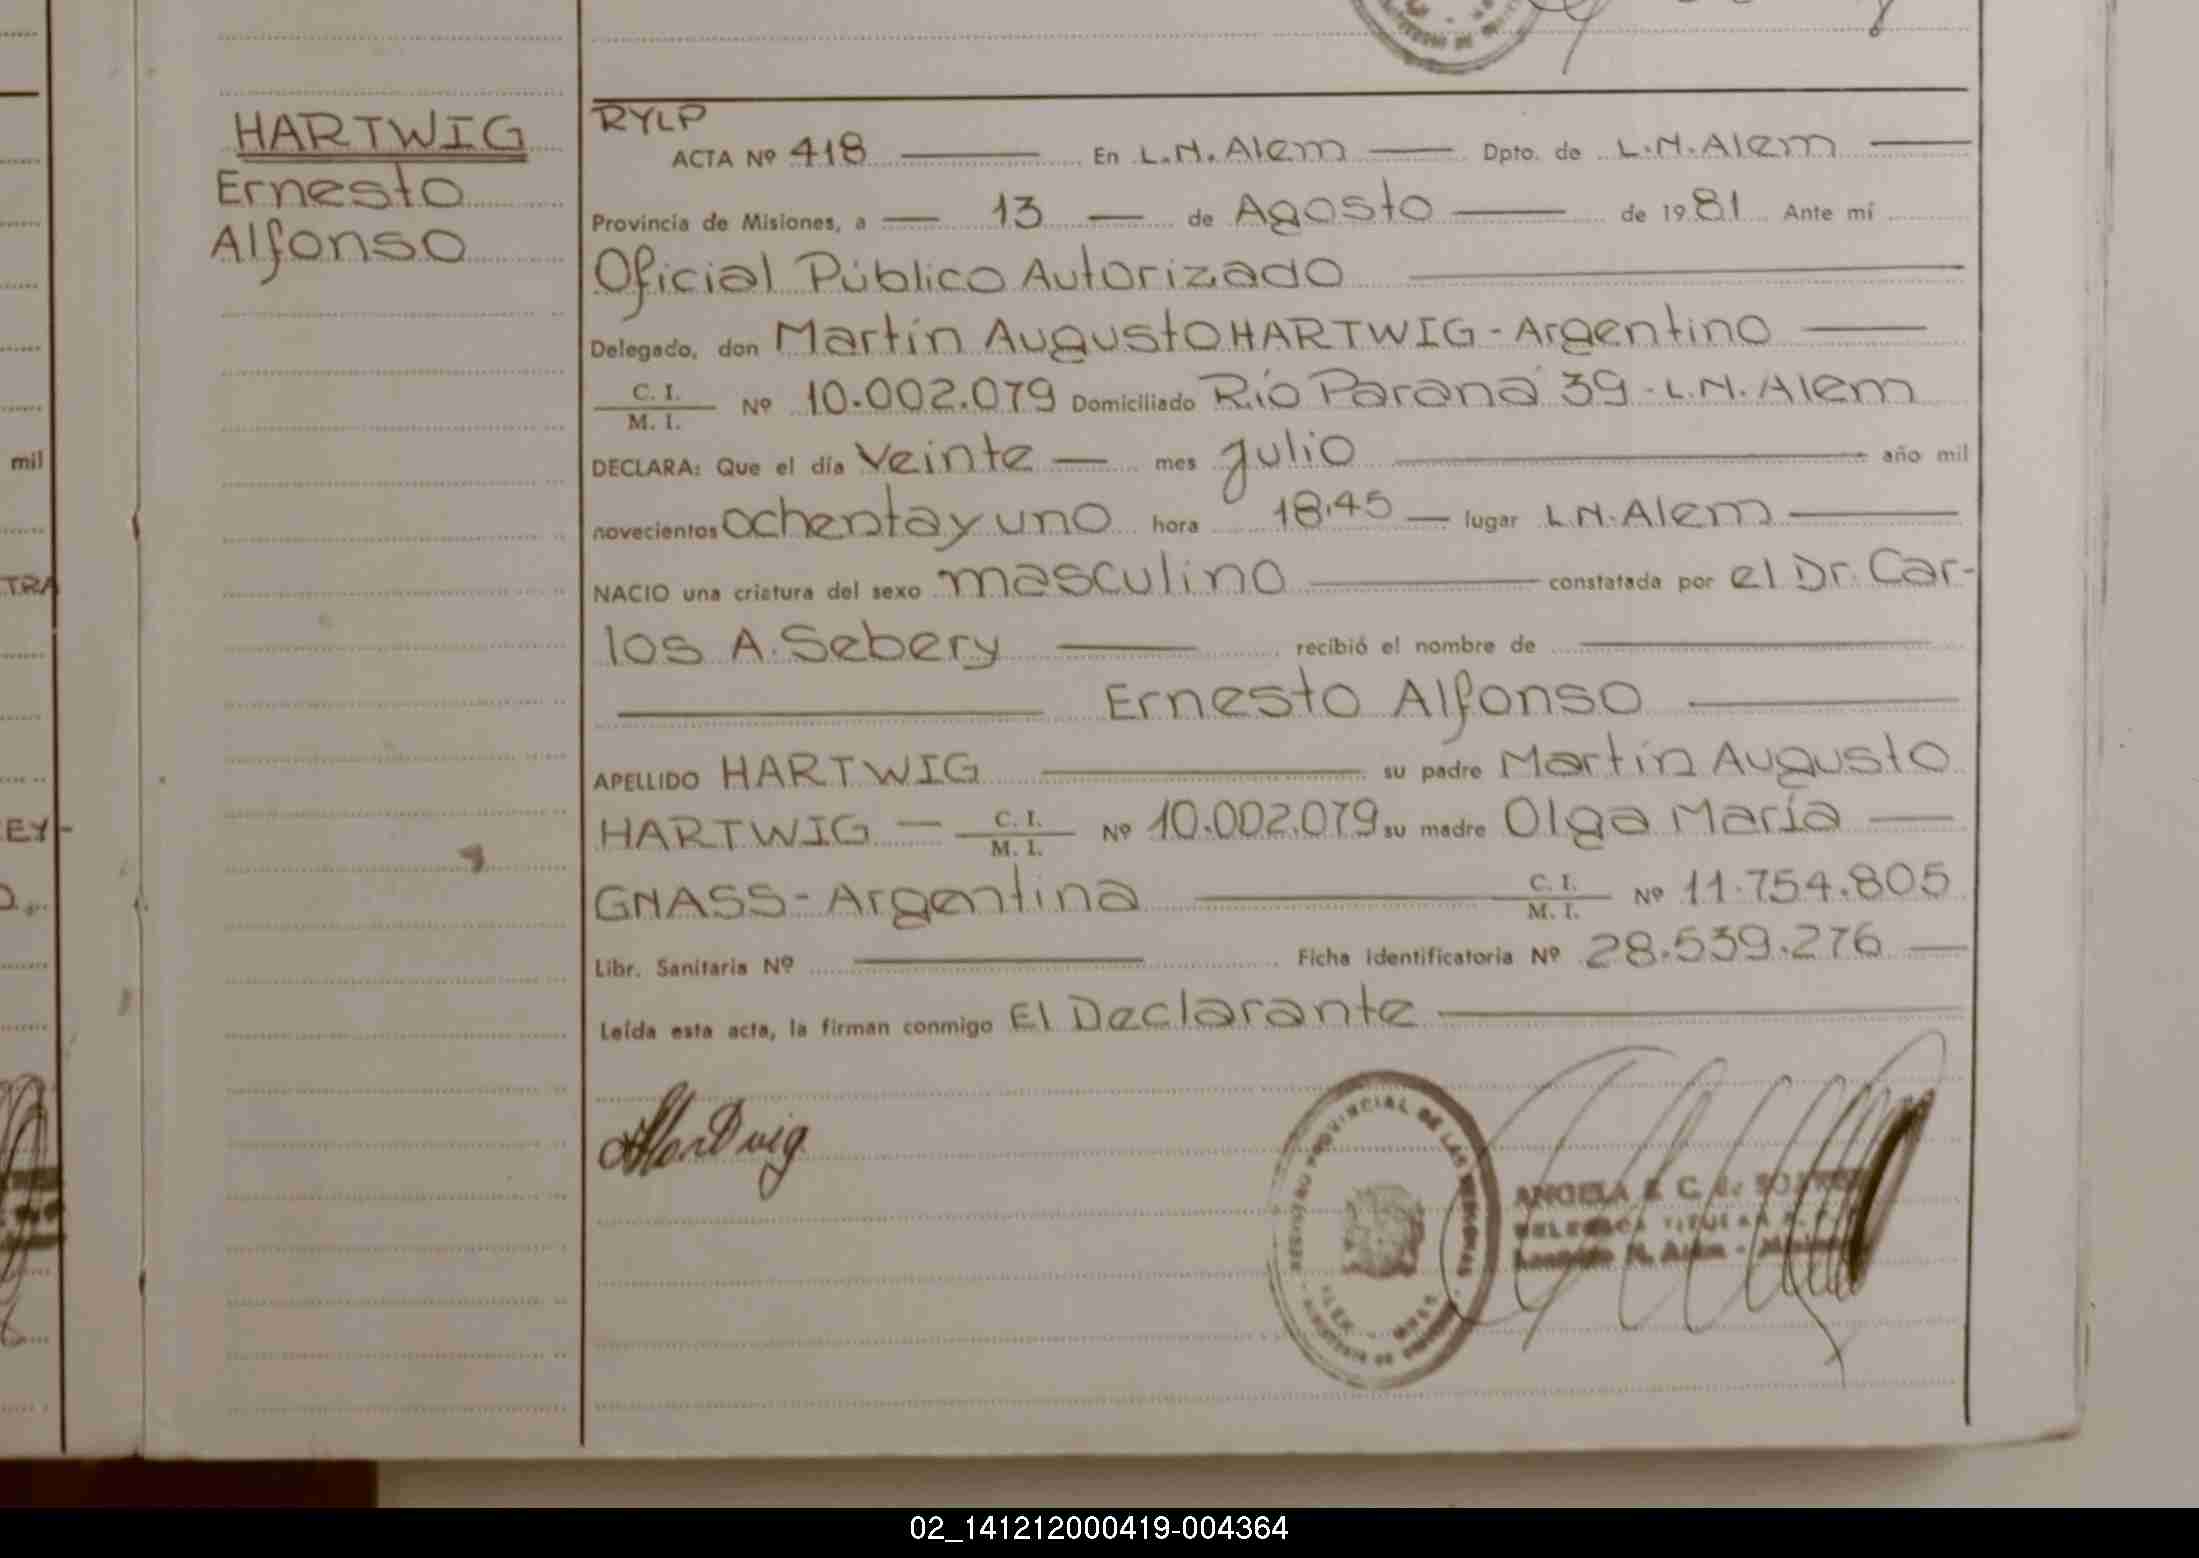 HARTWIG
Ernesto
Alfonso
mil
TRA
EY-
RYLP
ACTA Nº 418 En L.N.Alem Dpto. de L.N.Alem
Provincia de Misiones, a 13 de Agosto de 1981 Ante mí
Oficial Público Autorizado
Delegado, don Martín Augusto HARTWIG - Argentino
C. I.
M. I. Nº 10.002.079 Domiciliado Río Paraná 39 - L.N. Alem
DECLARA: Que el día veinte mes julio año mil
novecientos ochenta y uno hora 18.45 lugar L.N.Alem
NACIO una criatura del sexo masculino constatada por el Dr. Car-
los A. Sebery recibió el nombre de
Ernesto Alfonso
APELLIDO HARTWIG su padre Martín Augusto
HARTWIG C. I.
M. I. Nº 10.002.079 su madre Olga María
GNASS - Argentina C. I.
M. I. Nº 11.754.805
Libr. Sanitaria Nº Ficha identificatoria Nº 28.539.276
Leída esta acta, la firman conmigo El Declarante
Hartwig
REGISTRO PROVINCIAL DE LAS PERSONAS
ALEM - MNES
MINISTERIO DE
ANGELA C. de
DELEGADA TITULAR
Leandro N. Alem - Misiones
02_141212000419-004364